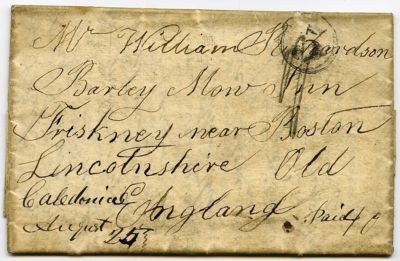 Mr William Richardson
Barley Mow Inn
Friskney near Boston
Lincolnshire Old
England
Caledonia
August 25
Paid 4